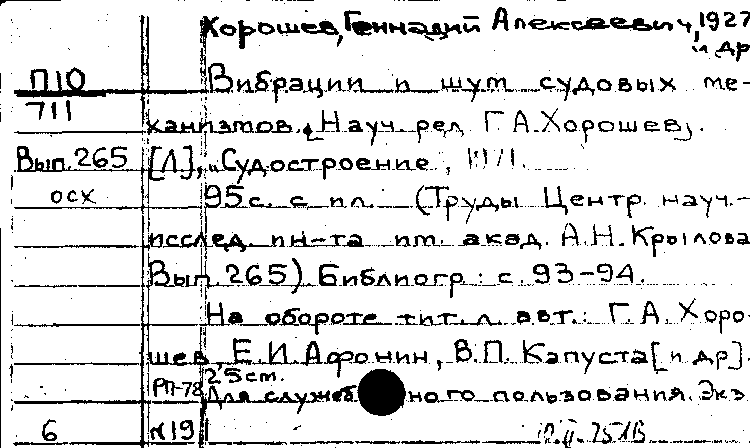 Хорошев, Геннадий Алексеевич, 1927
и др
П10
711
Вибрации и шум судовых ме-
ханизмов. [Науч. ред Г.А.Хорошев].
Вып. 265
[Л], „Судостроение", 1971.
осх
95с. с ил. (Труды Центр науч.-
исслед. ин-та им. акад. А.Н.Крылова
Вып. 265) Библиогр: с. 93-94.
На обороте тит. л. авт.: Г.А. Хоро-
шев, Е.И.Афонин, В.П. Капуста [и др].
25 cm.
РП-78
Для служебного пользования. Экз
6
N19